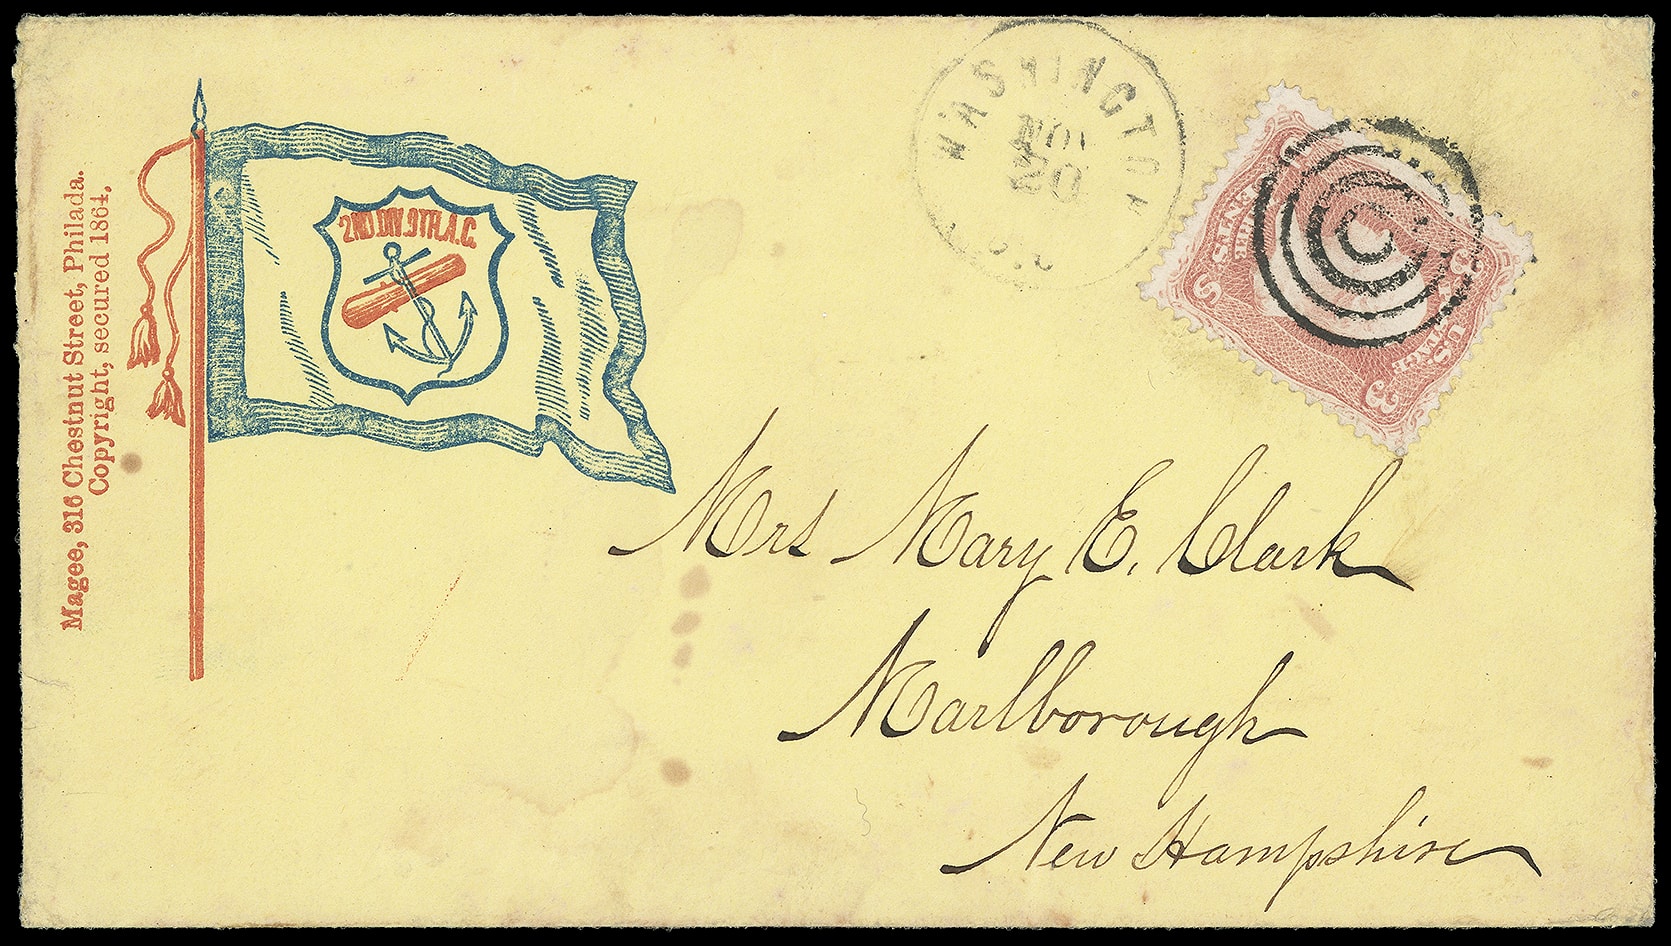 Magee, 316 Chestnut Street, Philada.
Copyright, secured 1864.
2ND.DIV.9TH.A.C.
WASHINGTON
NOV
20
D.C.
U.S. POSTAGE
THREE CENTS
3
3
Mrs Mary E. Clark
Marlborough
New Hampshire